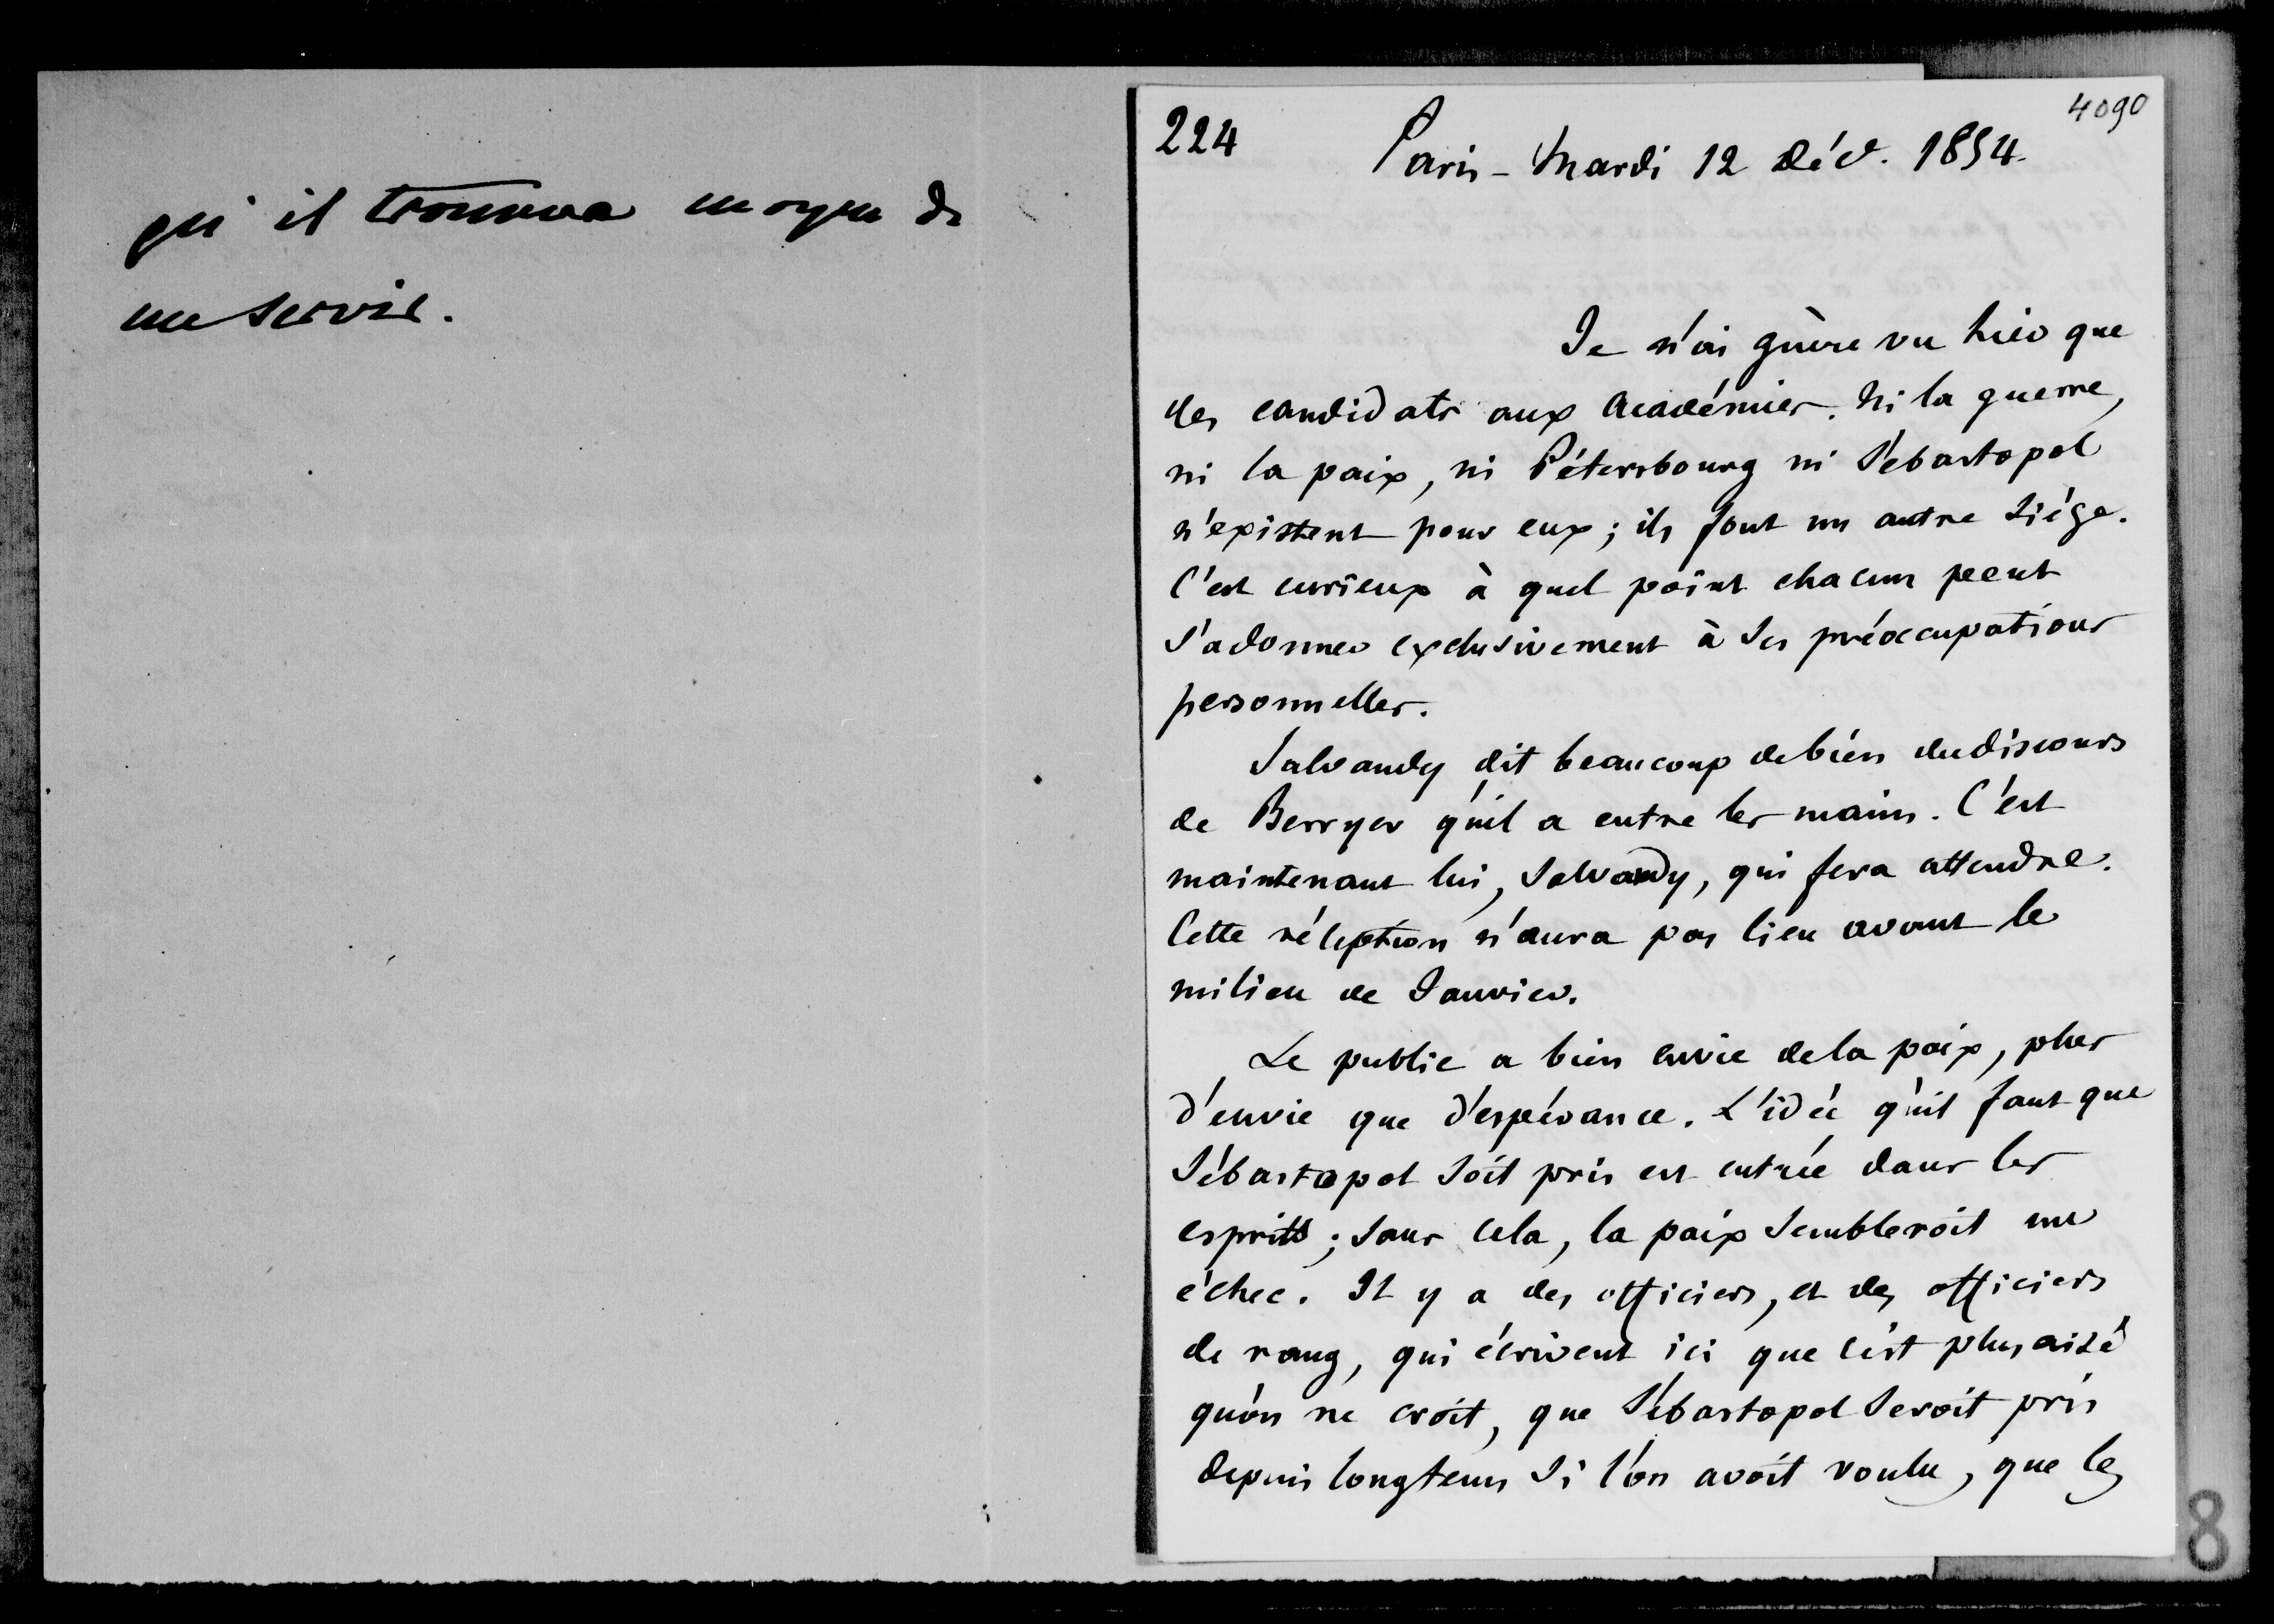 qu'il trouvera moyen de
me servir.
4090
224
Paris - Mardi 12 Déc. 1854.
Je n'ai guère vu hier que
des candidats aux Académies. Ni la guerre,
ni la paix, ni Pétersbourg ni Sébastopol
n'existent pour eux ; ils font un autre siége.
C'est curieux à quel point chacun peut
s'adonner exclusivement à ses préoccupations
personnelles.
Salvandy dit beaucoup de bien du discours
de Berryer qu'il a entre les mains. C'est
maintenant lui, Salvandy, qui fera attendre.
Cette réception n'aura pas lieu avant le
milieu de Janvier.
Le public a bien envie de la paix, plus
d'envie que d'espérance. L'idée qu'il faut que
Sébastopol soit pris est entrée dans les
esprits ; sans cela, la paix sembleroit un
échec. Il y a des officiers, et des officiers
de rang, qui écrivent ici que c'est plus aisé
qu'on ne croit, que Sébastopol seroit pris
depuis longtems si l'on avoit voulu, que les
8